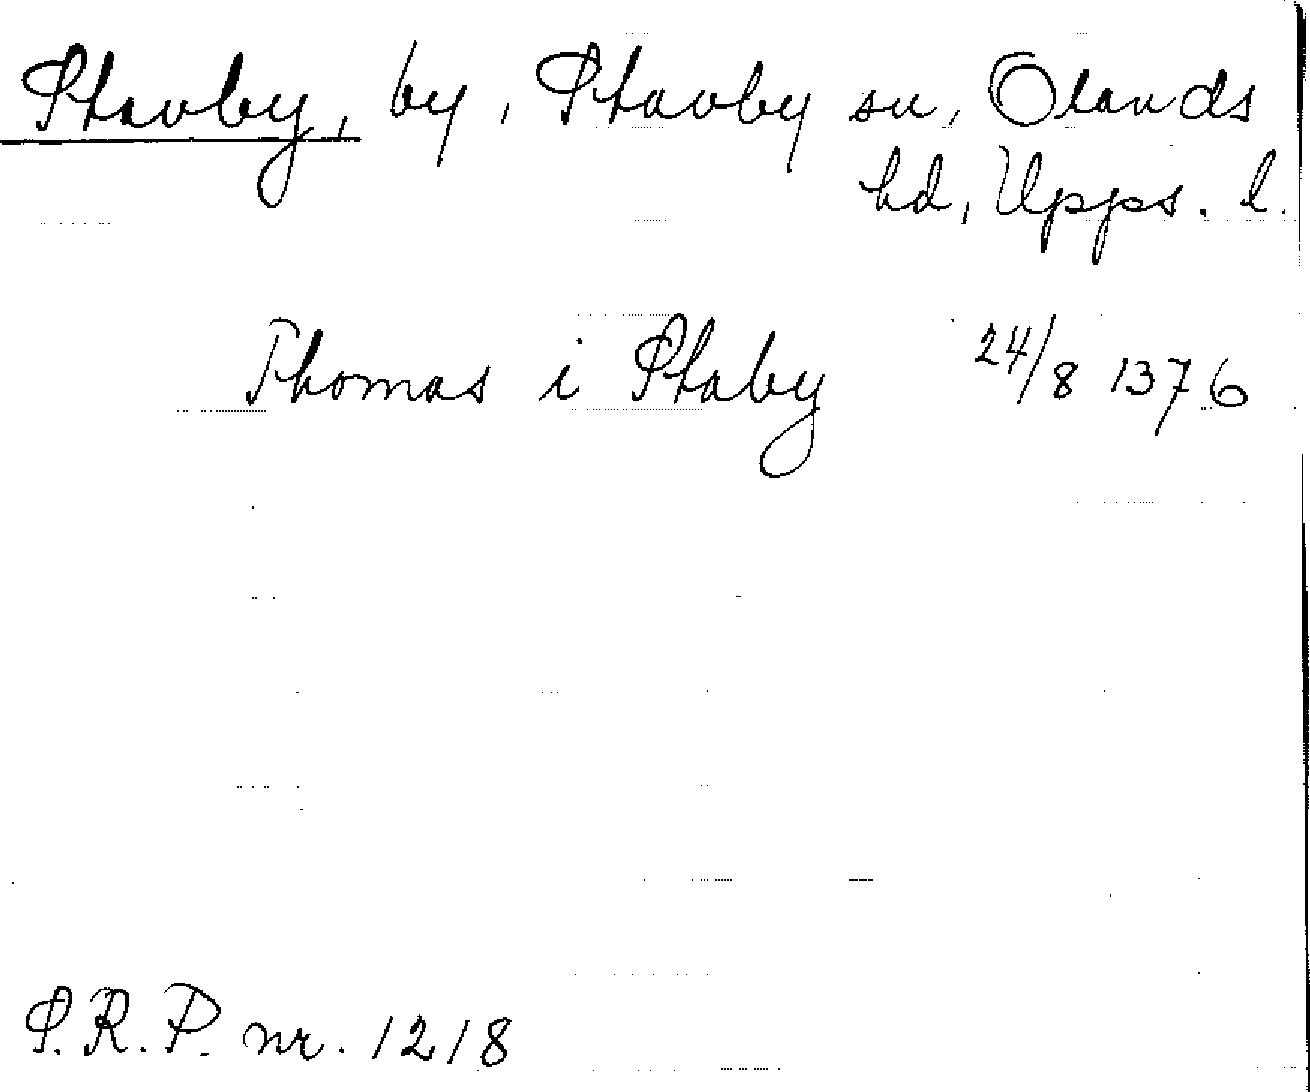 Stavby, by, Stavby sn, Olands
hd, Upps. l.
Thomas i Staby 24/8 1376
S.R.P. nr. 1218